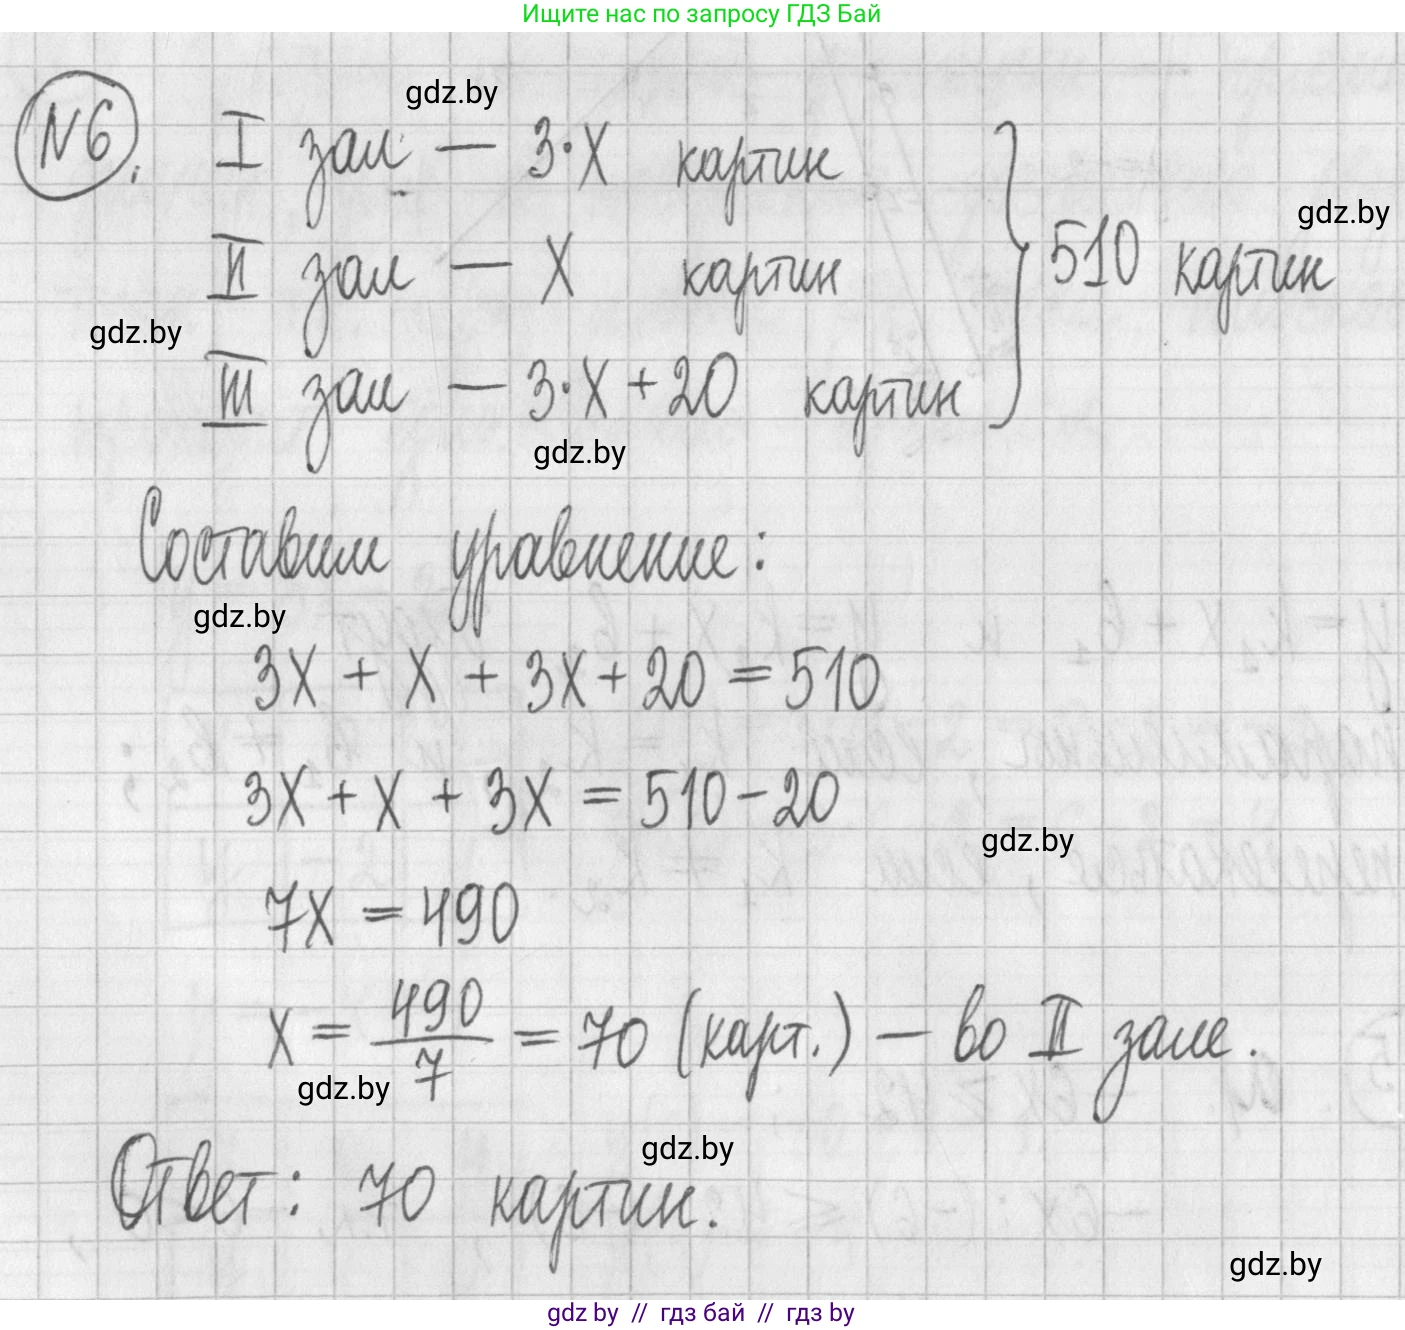 Ищите нас по запросу ГДЗ Бай
gdz.by
№6. I зал — 3·x картин
gdz.by
II зал — x картин
510 картин
gdz.by
III зал — 3·x + 20 картин
gdz.by
Составим уравнение:
gdz.by
3x + x + 3x + 20 = 510
3x + x + 3x = 510 - 20
gdz.by
7x = 490
x = 490/7 = 70 (карт.) — во II зале.
gdz.by
gdz.by
Ответ: 70 картин.
gdz.by
gdz by // гдз бай // гдз by